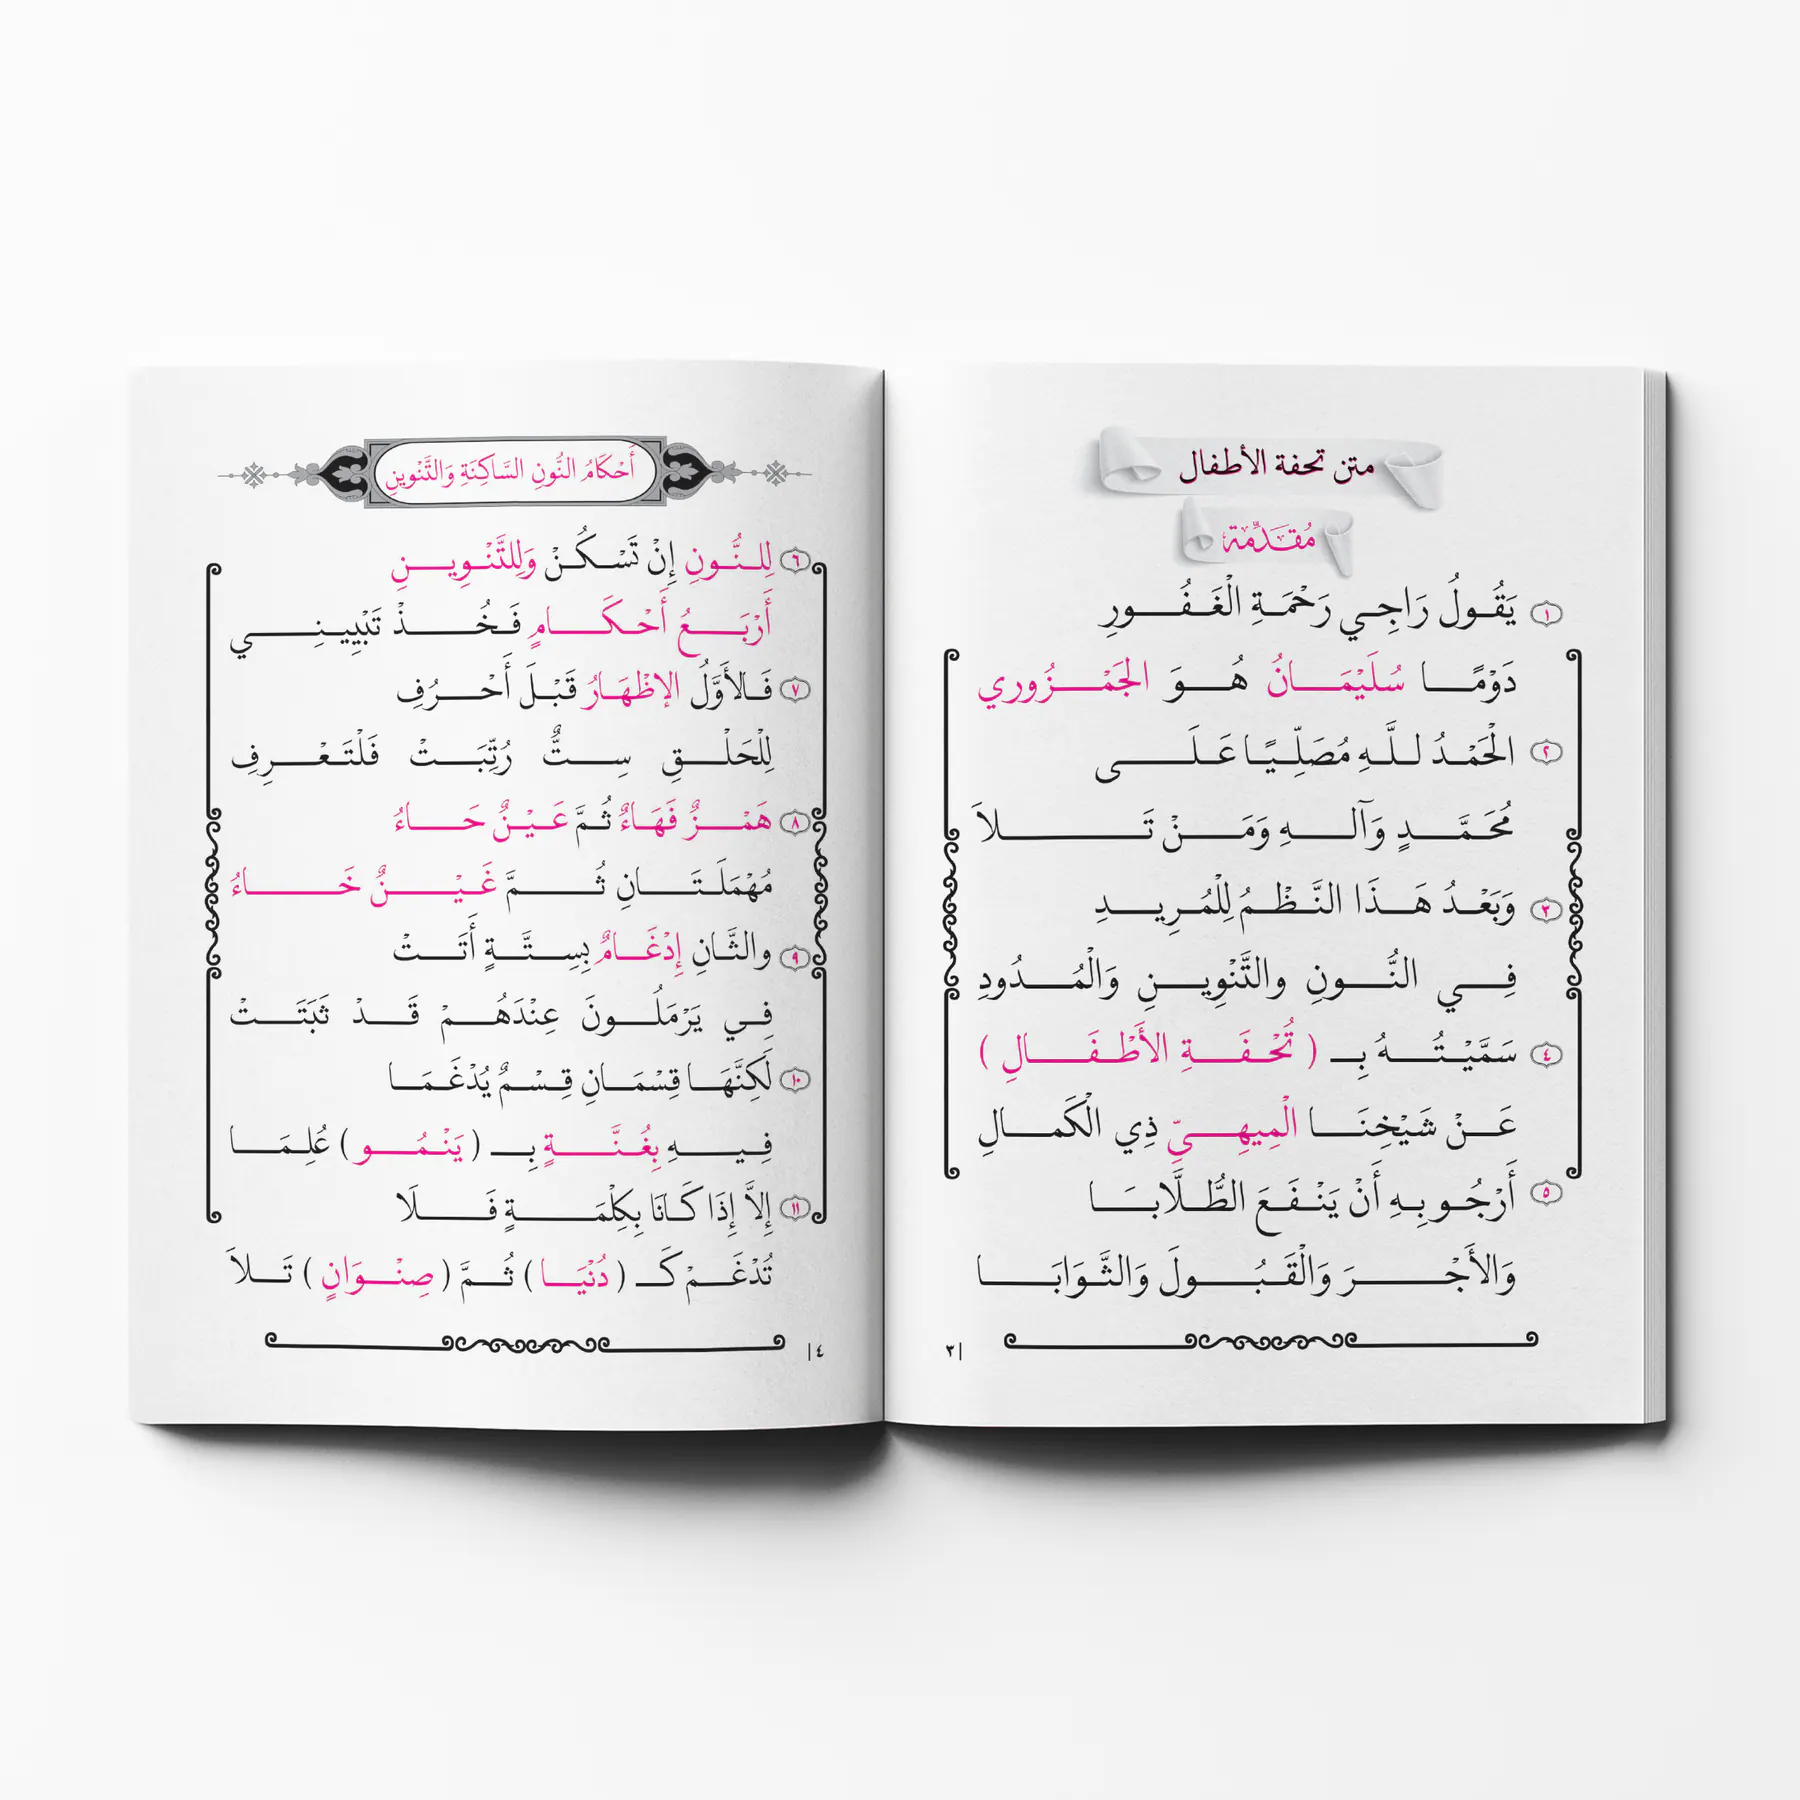 متن تحفة الأطفال
مُقَدِّمَة
١ يَقُولُ رَاجِي رَحْمَةِ الْغَفُورِ
دَوْمًا سُلَيْمَانُ هُوَ الجَمْزُورِي
٢ الْحَمْدُ لِلَّهِ مُصَلِّيًا عَلَى
مُحَمَّدٍ وَآلِهِ وَمَنْ تَلاَ
٣ وَبَعْدُ هَذَا النَّظْمُ لِلْمُرِيدِ
فِي النُّونِ والتَّنْوِينِ وَالْمُدُودِ
٤ سَمَّيْتُهُ بِـ ( تُحْفَةِ الأَطْفَالِ )
عَنْ شَيْخِنَا الْمِيهِيِّ ذِي الْكَمالِ
٥ أَرْجُو بِهِ أَنْ يَنْفَعَ الطُّلَّابَا
وَالأَجْرَ وَالْقَبُولَ وَالثَّوَابَا
٣
أَحْكَامُ النُّونِ السَّاكِنَةِ وَالتَّنْوِينِ
٦ لِلنُّونِ إِنْ تَسْكُنْ وَلِلتَّنْوِينِ
أَرْبَعُ أَحْكَامٍ فَخُذْ تَبْيِينِي
٧ فَالأَوَّلُ الإظْهَارُ قَبْلَ أَحْرُفِ
لِلْحَلْقِ سِتٌّ رُتِّبَتْ فَلْتَعْرِفِ
٨ هَمْزٌ فَهَاءٌ ثُمَّ عَيْنٌ حَاءُ
مُهْمَلَتَانِ ثُمَّ غَيْنٌ خَاءُ
٩ والثَّانِ إِدْغَامٌ بِسِتَّةٍ أَتَتْ
فِي يَرْمَلُونَ عِنْدَهُمْ قَدْ ثَبَتَتْ
١٠ لَكِنَّهَا قِسْمَانِ قِسْمٌ يُدْغَمَا
فِيهِ بِغُنَّةٍ بِـ ( يَنْمُو ) عُلِمَا
١١ إِلاَّ إِذَا كَانَا بِكِلْمَةٍ فَلَا
تُدْغَمْ كَـ ( دُنْيَا ) ثُمَّ ( صِنْوَانٍ ) تَلاَ
٤